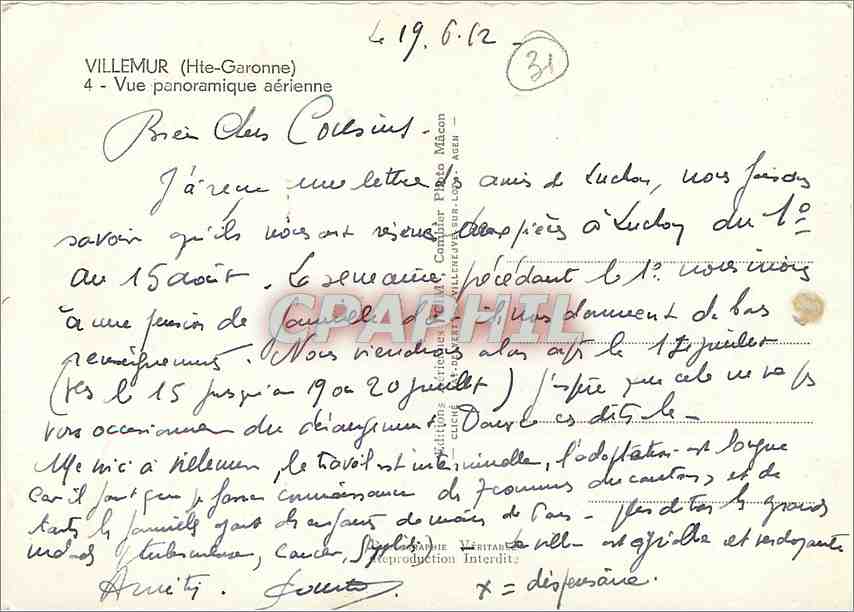 le 19.6.62
31
VILLEMUR (Hte-Garonne)
4 - Vue panoramique aérienne
Bien Chers Cousins.
J'ai reçu une lettre des amis de Luchon, nous faisons
savoir qu'ils nous ont réservé deux pièces à Luchon du 1°
au 15 août. La semaine précédant le 1° nous irons
à une pension de famille dont ils nous donnent de bons
renseignements. Nous viendrons alors après le 14 juillet
(vers le 15 jusqu'au 19 ou 20 juillet) j'espère que cela ne va pas
vous occasionner du dérangement. Dans ce cas dites le -
Me voici à Villemur, le travail est interminable, l'adaptation est longue
car il faut que je fasse connaissance de 7 communes du canton, et de
toutes les familles ayant des enfants de moins de ans - plus de tous les grands
malades tuberculeux, cancer, syphilis) - La ville est agréable et verdoyante
Amitiés
x = dispensaire.
Editions Aériennes CIM Combier Photo Mâcon
CLICHÉ VILLENEUVE-SUR-LOT - AGEN
PHOTOGRAPHIE VÉRITABLE
Reproduction Interdite
CPARHIL